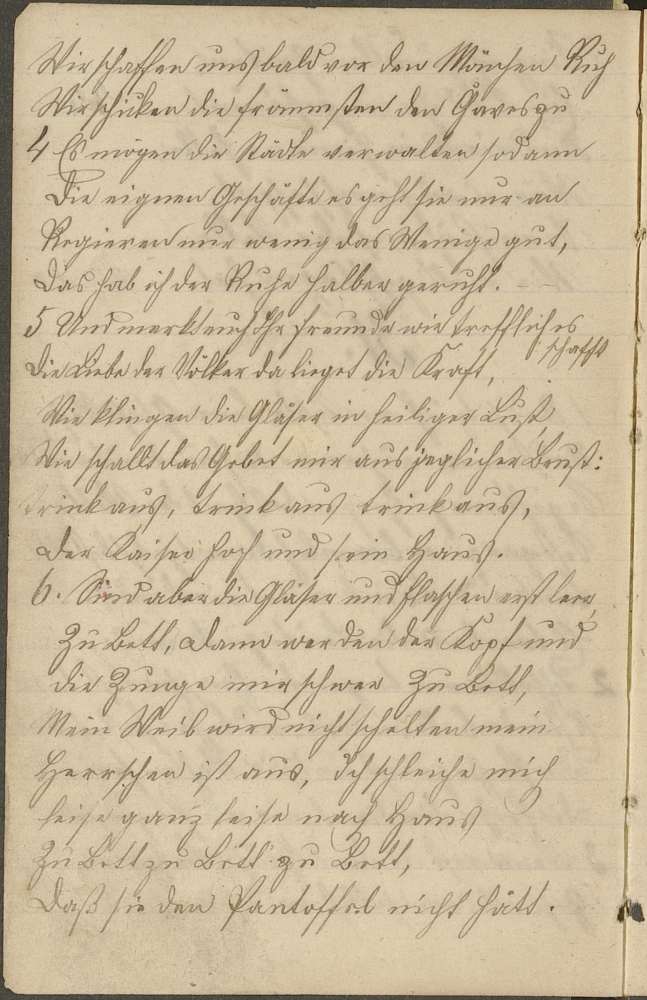 Wir schaffen uns bald vor den Mönchen Ruh
Wir schicken die frömmsten den
4 Es mögen die Städte verwalten sodann
Die eignen Geschäfte es geht sie nur an
Regieren nur wenig das Wenige gut,
Das hab ich der Ruhe halber geruht.
5 Und merkt euch Ihr freunde wie trefflich es
schafft
Die Liebe der Völker da lieget die Kraft,
Wie klingen die Gläser in heiliger Lust
Wie schallt das Gebet mir aus jeglicher Brust:
trink aus, trink aus trink aus,
Der Kaiser hoch und sein Haus.
6. Sind aber die Gläser und flaschen erst leer,
Zu Bett, dann werden der Kopf und
die Zunge mir schwer Zu Bett,
Mein Weib wird nicht schelten mein
Herrschen ist aus, Ich schleiche mich
leise ganz leise nach Haus
Zu Bett zu Bett zu Bett,
Daß sie den Pantoffel nicht hätt.